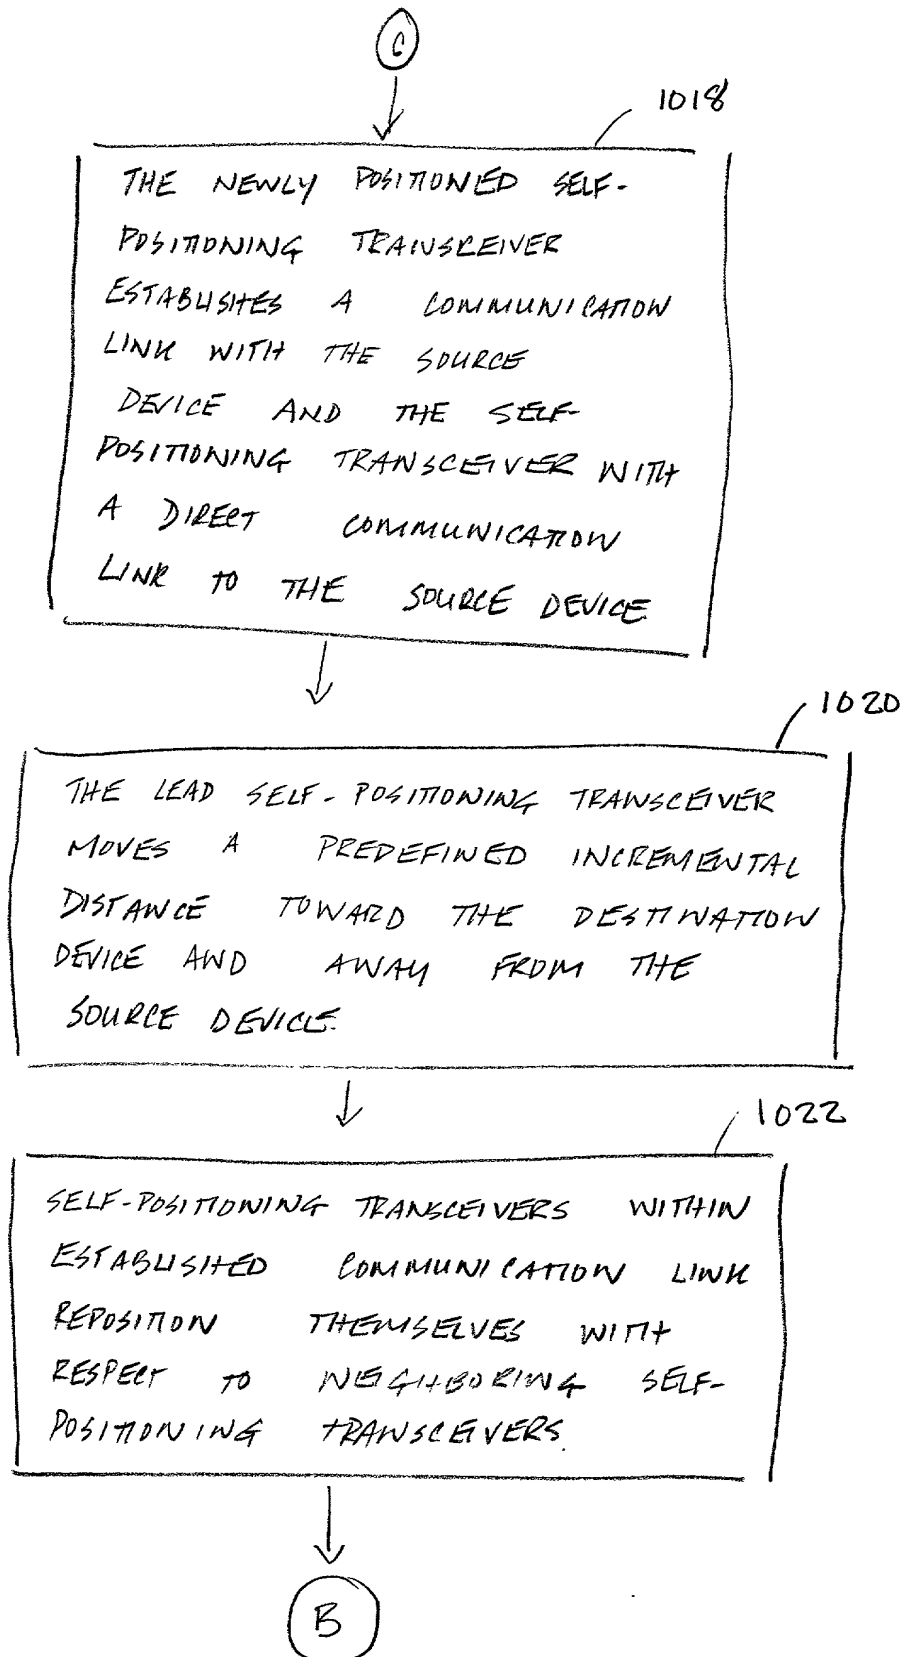 C
1018
THE NEWLY POSITIONED SELF-
POSITIONING TRANSCEIVER
ESTABLISHES A COMMUNICATION
LINK WITH THE SOURCE
DEVICE AND THE SELF-
POSITIONING TRANSCEIVER WITH
A DIRECT COMMUNICATION
LINK TO THE SOURCE DEVICE
1020
THE LEAD SELF-POSITIONING TRANSCEIVER
MOVES A PREDEFINED INCREMENTAL
DISTANCE TOWARD THE DESTINATION
DEVICE AND AWAY FROM THE
SOURCE DEVICE.
1022
SELF-POSITIONING TRANSCEIVERS WITHIN
ESTABLISHED COMMUNICATION LINK
REPOSITION THEMSELVES WITH
RESPECT TO NEIGHBORING SELF-
POSITIONING TRANSCEIVERS.
B